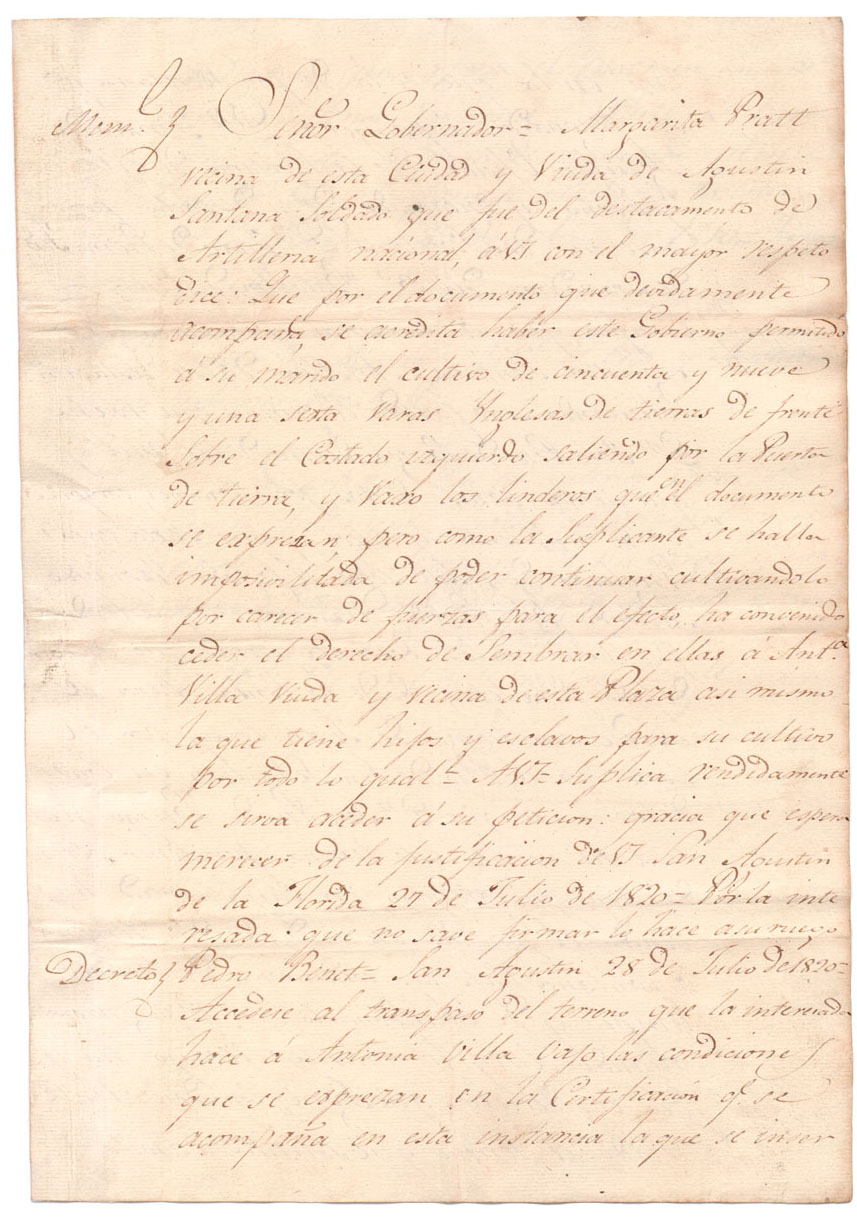 Mem.l Señor Gobernador = Margarita Pratt
vecina de esta Ciudad y Viuda de Agustin
Santana Soldado que fue del destacamento de
Artilleria nacional, á VS con el mayor respeto
dice: Que por el documento que devidamente
acompaña, se acredita haber este Gobierno permitido
á su marido el cultivo de cincuenta y nueve
y una sexta varas Ynglesas de tierras de frente
Sobre el Costado izquierdo saliendo por la Puerta
de tierra, y vaxo los linderos que en el documento
se exprezan, pero como la Suplicante se halla
imposivilitada de poder continuar cultivandolo
por carecer de fuerzas para el efecto, ha convenido
ceder el derecho de Sembrar en ellas á Ant.a
Villa viuda y vecina de esta Plaza asi mismo
la que tiene hijos y esclavos para su cultivo
por todo lo qual = A VS = Suplica rendidamente
se sirva acceder á su peticion: gracia que espera
merecer de la justificacion de VS San Agustin
de la Florida 27 de Julio de 1820 = Por la inte
resada que no save firmar lo hace a su ruego
Decreto Pedro Benet = San Agustin 28 de Julio de 1820 =
Accedese al transpaso del terreno que la interesada
hace á Antonia Villa vajo las condiciones
que se exprezan en la Certificación q.e se
acompaña en esta instancia la que se inser